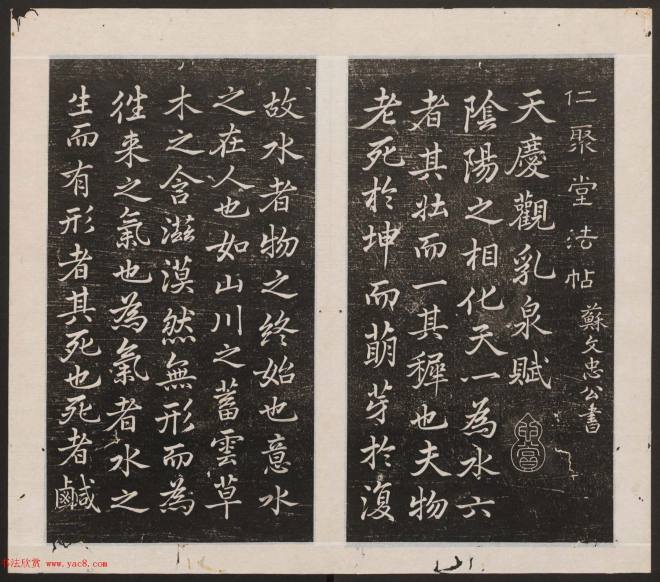 仁聚堂法帖
蘇文忠公書
天慶觀乳泉賦
陰陽之相化天一為水六
者其壯而一其穉也夫物
老死於坤而萌芽於復
故水者物之終始也意水
之在人也如山川之蓄雲草
木之含滋漠然無形而為
往来之氣也為氣者水之
生而有形者其死也死者鹹
书法欣赏 www.yac8.com